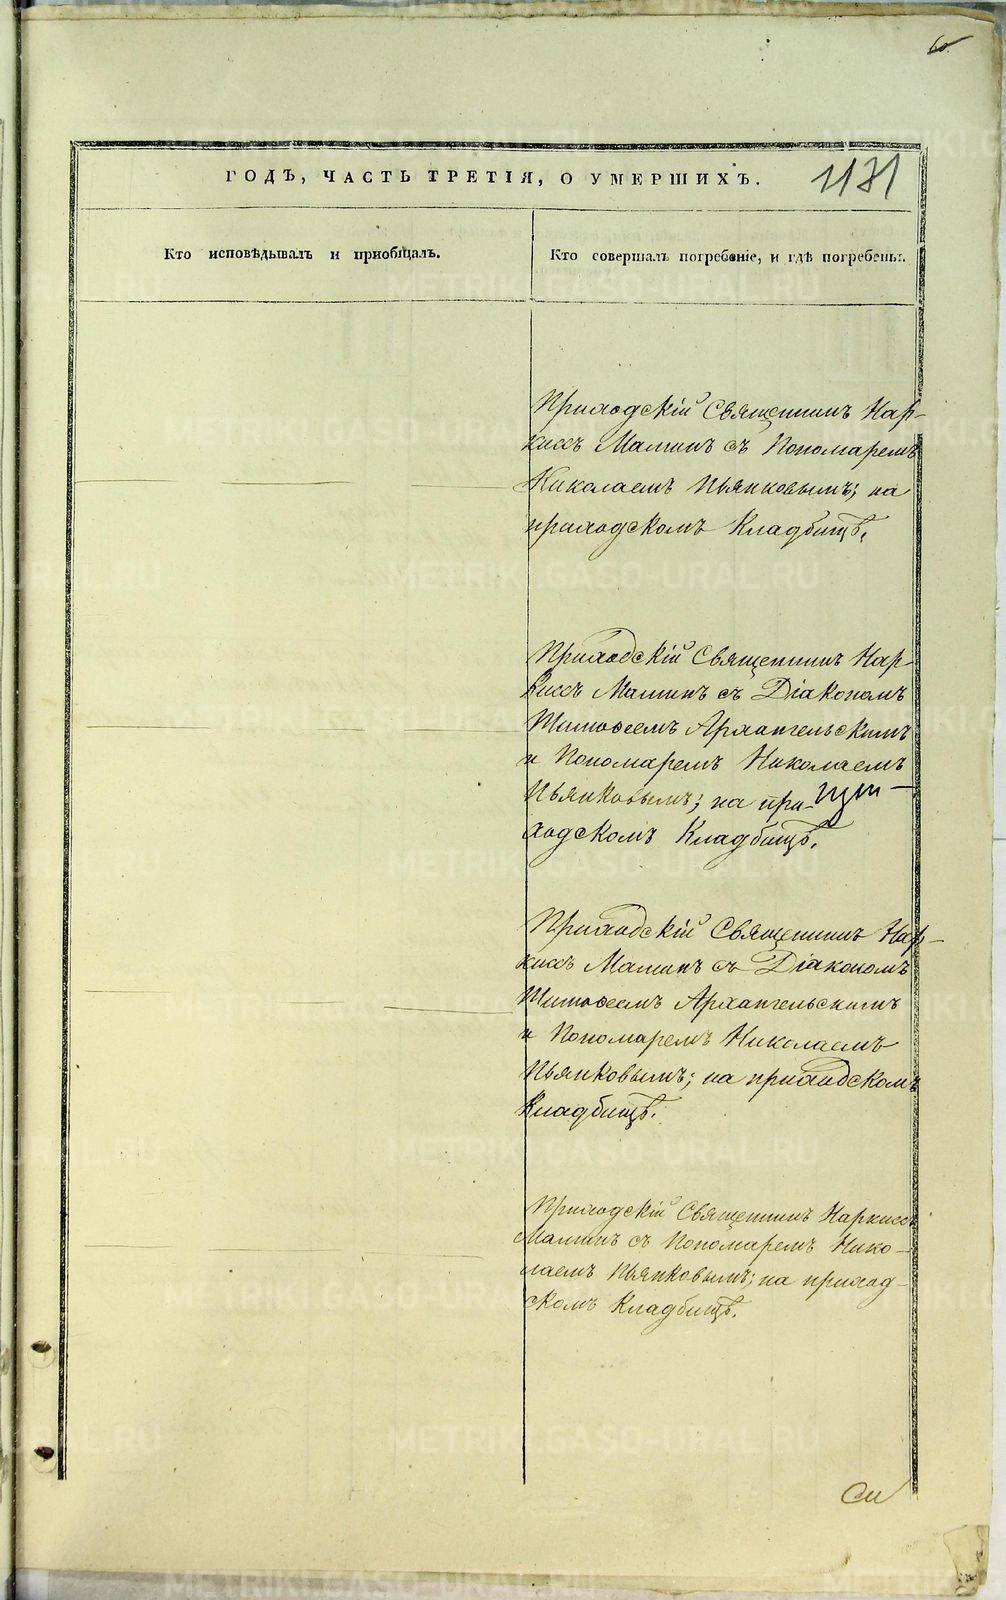 ГОДЪ, ЧАСТЬ ТРЕТІЯ, О УМЕРШИХЪ.
1131
Кто исповѣдывалъ и приобщалъ.
Кто совершалъ погребеніе, и гдѣ погребены.
Приходскій Священникъ Нар-
киссъ Маминъ съ Пономаремъ
Николаемъ Пьянковымъ; на
приходскомъ Кладбищѣ.
Приходскій Священникъ Нар-
киссъ Маминъ съ Діакономъ
Тимофеемъ Архангельскимъ
и Пономаремъ Николаемъ
Пьянковымъ; на при-
ходскомъ Кладбищѣ.
Приходскій Священникъ Нар-
киссъ Маминъ съ Діакономъ
Тимофеемъ Архангельскимъ
и Пономаремъ Николаемъ
Пьянковымъ; на приходскомъ
Кладбищѣ.
Приходскій Священникъ Наркиссъ
Маминъ съ Пономаремъ Нико-
лаемъ Пьянковымъ; на приход-
скомъ Кладбищѣ.
METRIKI.GASO-URAL.RU